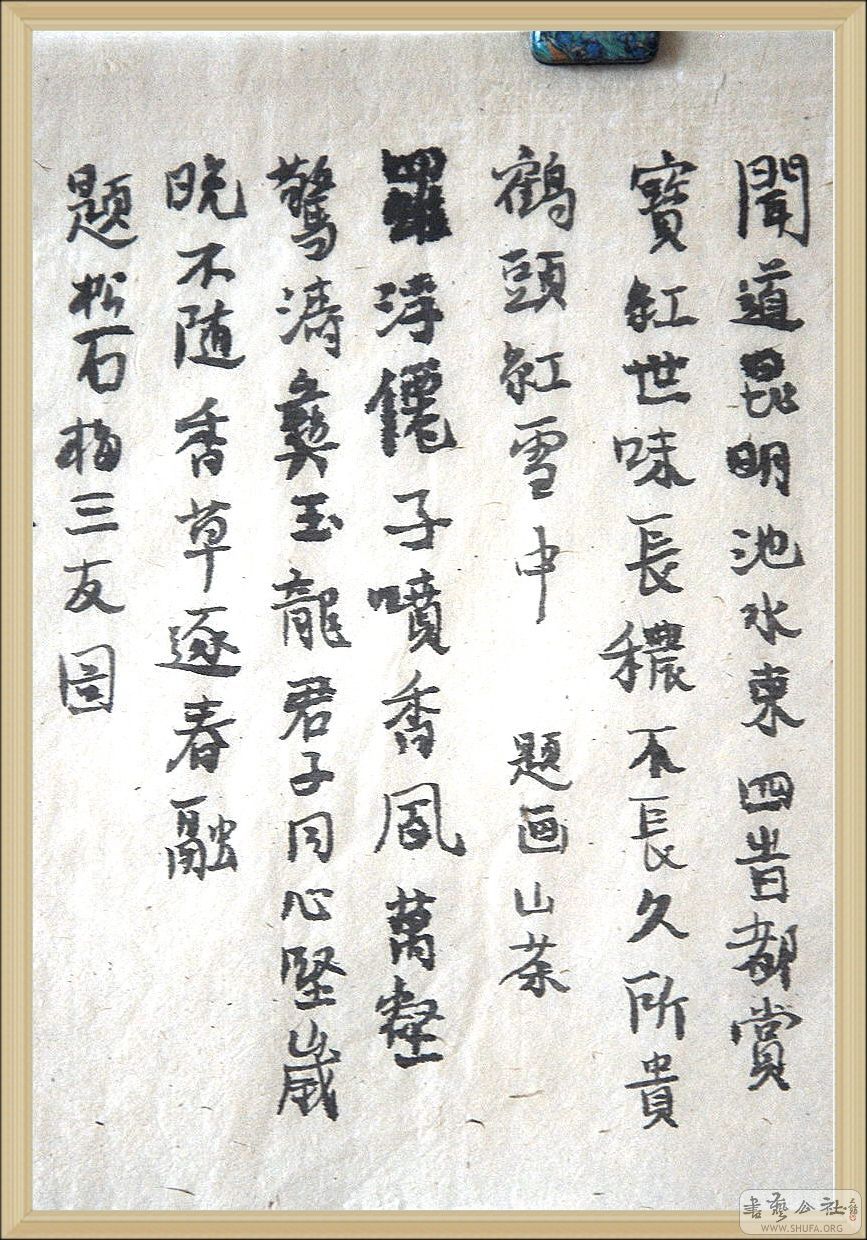 聞道昆明池水東四時都賞
寶紅世味長穠不長久所貴
鶴頭紅雪中 題画山茶
羅浮僊子噴香風萬壑
驚濤彝玉龍君子同心堅歲
晚不随香草逐春融
題松石梅三友圖
書藝公社
WWW.SHUFA.ORG